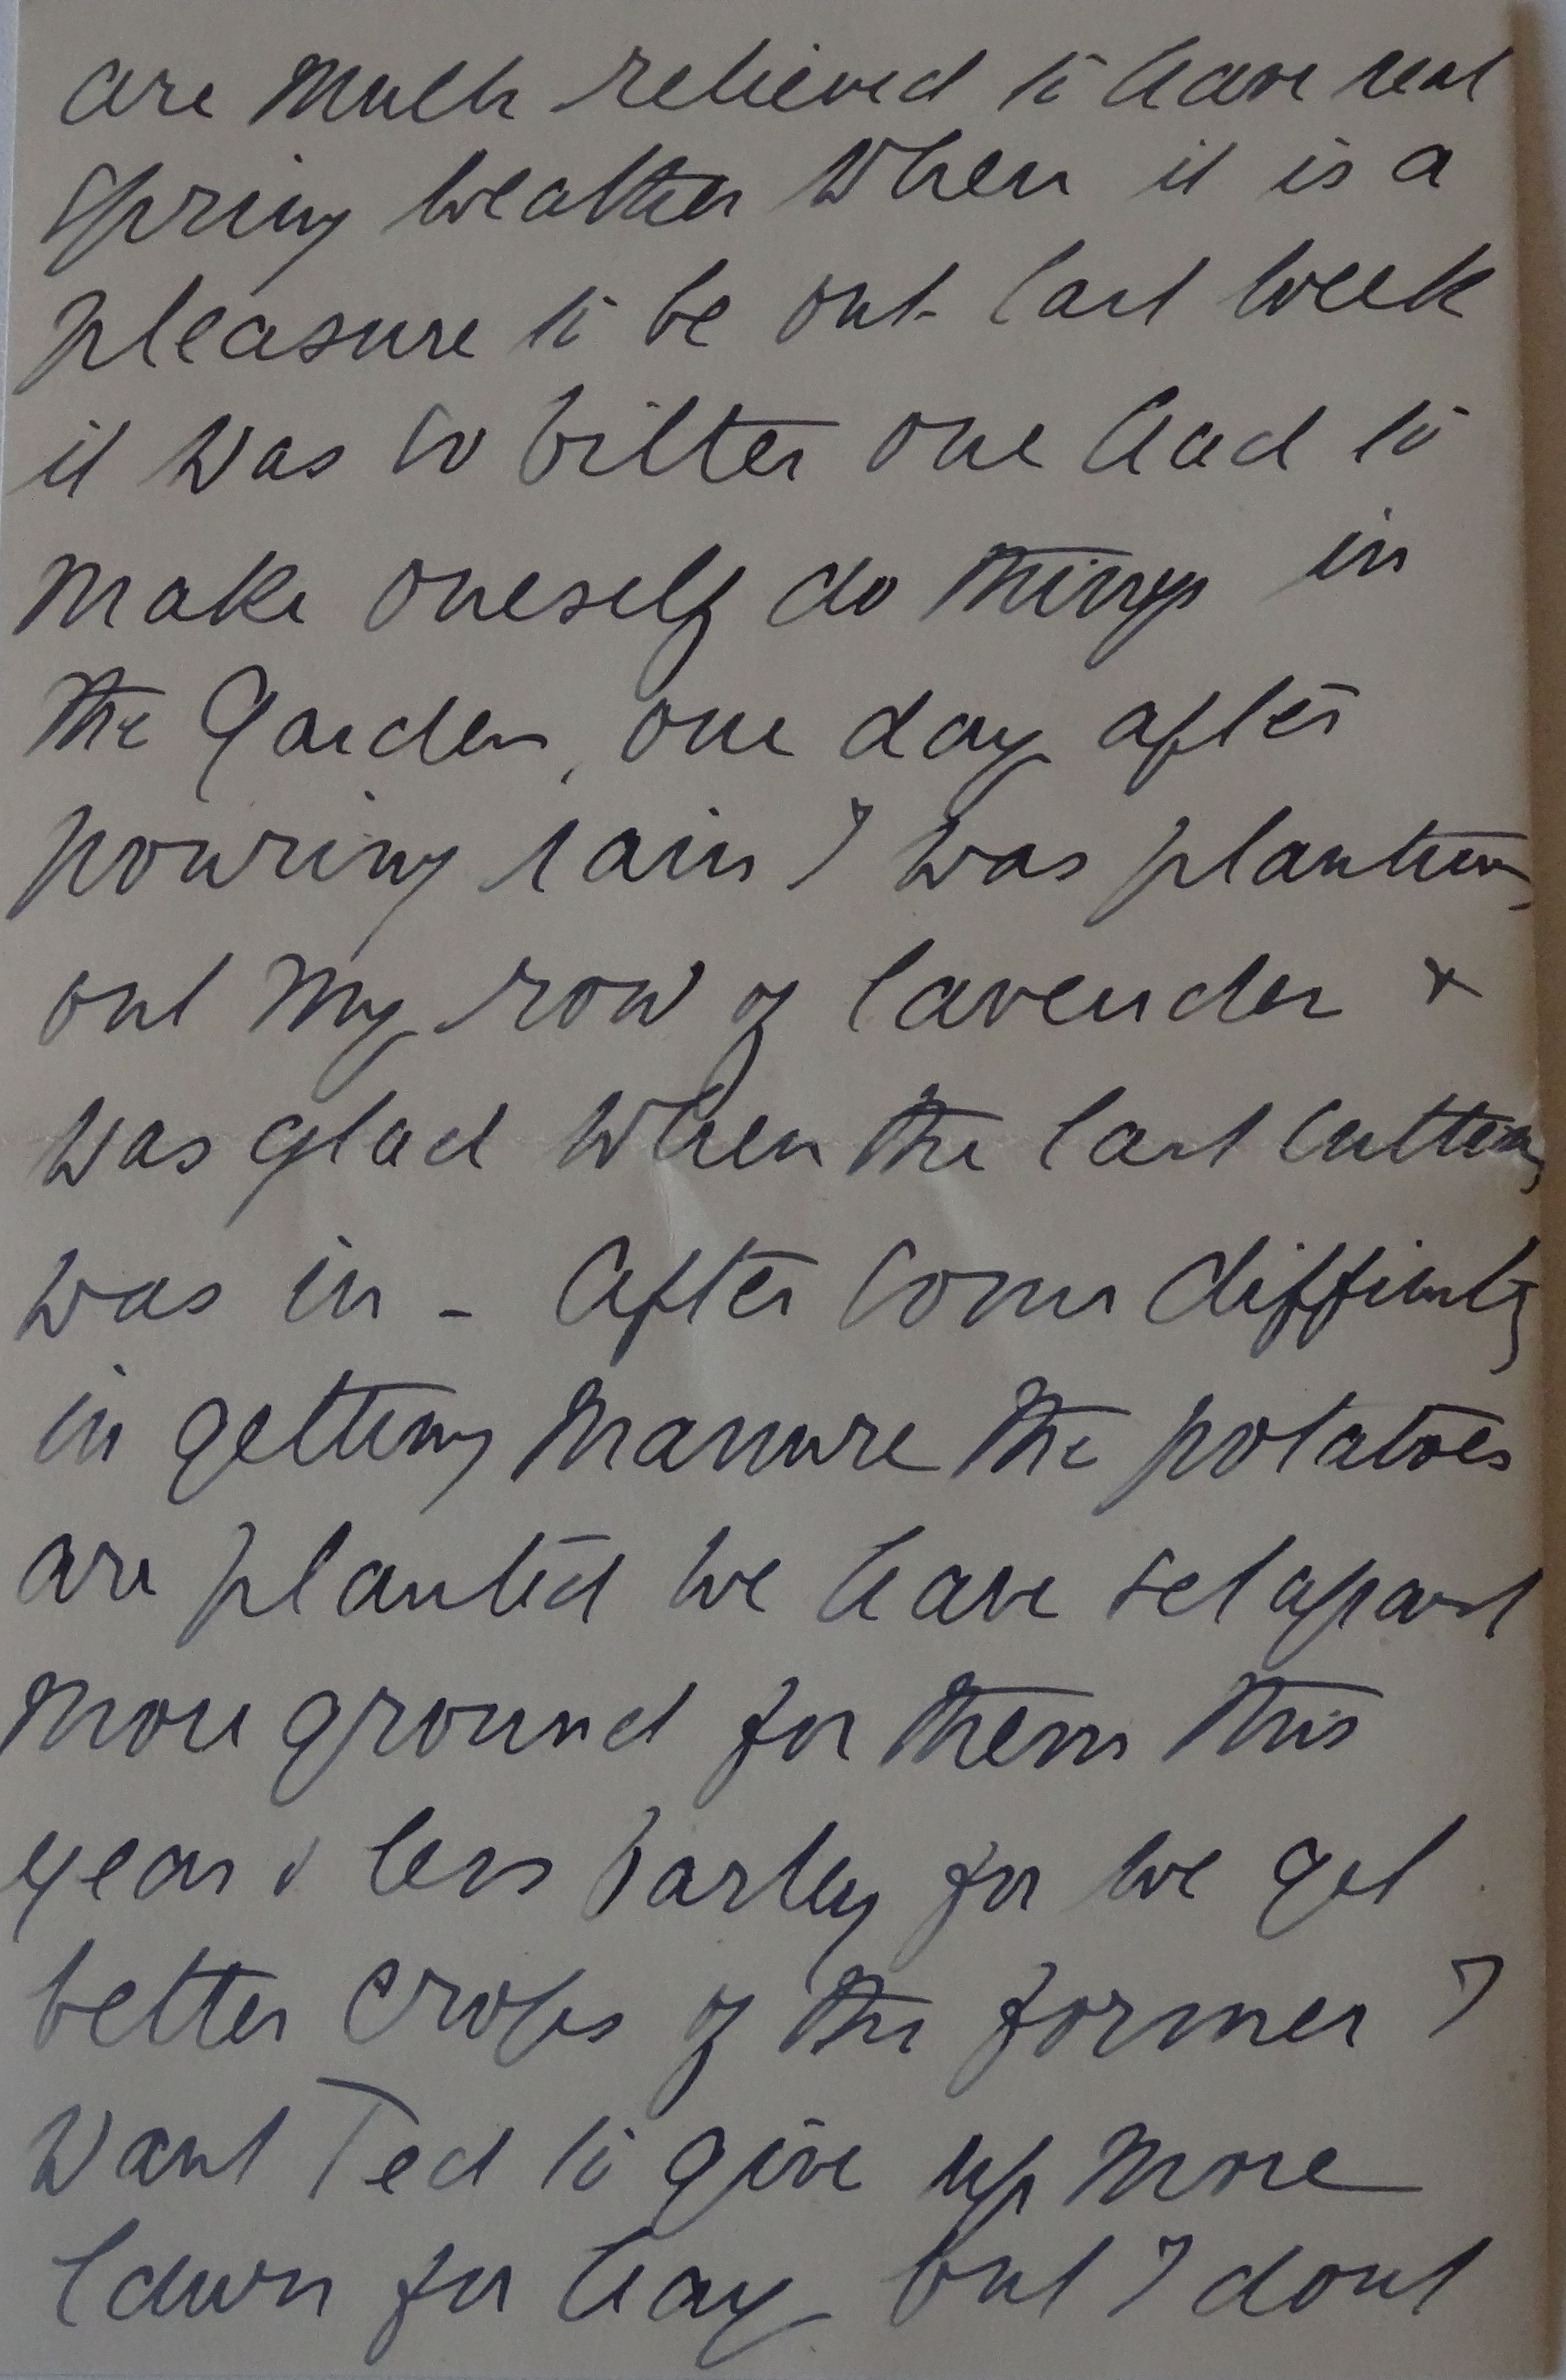 are much relieved to have real
spring weather when it is a
pleasure to be out - last week
it was so bitter one had to
make oneself do things in
the garden, one day after
pouring rain I was planting
out my row of lavender &
was glad when the last cutting
was in - After some difficulty
in getting manure the potatoes
are planted we have set apart
more ground for them this
year & less barley for we get
better crops of the former I
want Ted to give up more
lawn for hay but I dont